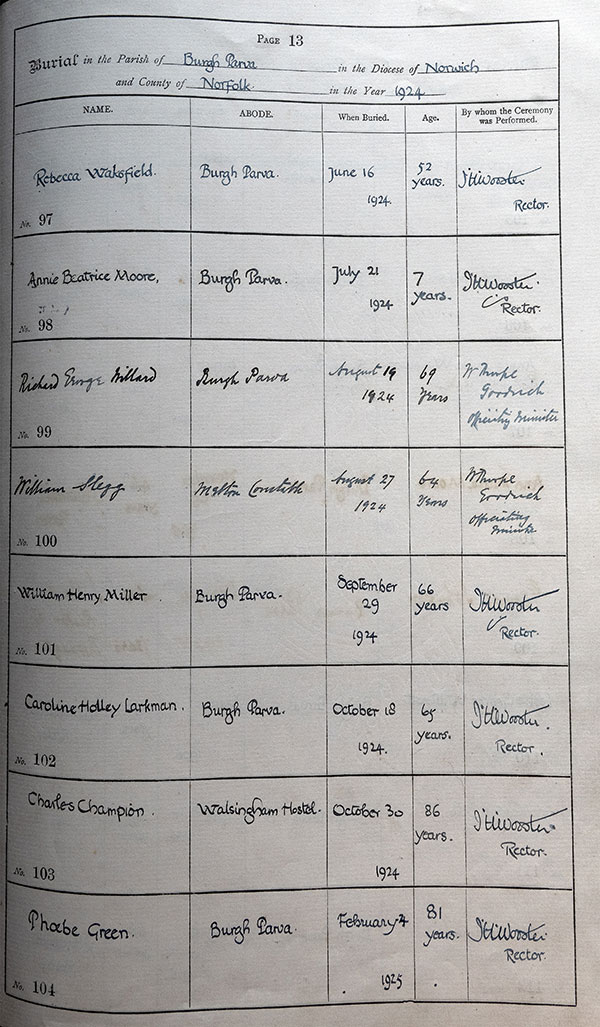 PAGE 13
Burial in the Parish of Burgh Parva in the Diocese of Norwich
and County of Norfolk in the Year 1924
NAME. ABODE. When Buried. Age. By whom the Ceremony was Performed.
Rebecca Waksfield. Burgh Parva. June 16 52 years. J H Wooster
1924. Rector.
No. 97
Annie Beatrice Moore, Burgh Parva. July 21 7 years. J H Wooster.
1924 Rector.
No. 98
Richard George Willard Burgh Parva August 19 69 W Thorpe
1924 Years Goodrich
officiatg Minister
No. 99
William Slegg Melton Constable August 27 64 W Thorpe
1924 Years Goodrich
officiating
Minister
No. 100
William Henry Miller Burgh Parva. September 66 J H Wooster
29 years
1924 Rector.
No. 101
Caroline Holley Larkman. Burgh Parva. October 18 65 J H Wooster.
1924. years. Rector.
No. 102
Charles Champion. Walsingham Hostel. October 30 86 J H Wooster.
years. Rector.
No. 103 1924
Phoebe Green. Burgh Parva. February 4 81 J H Wooster.
years. Rector.
No. 104 1925